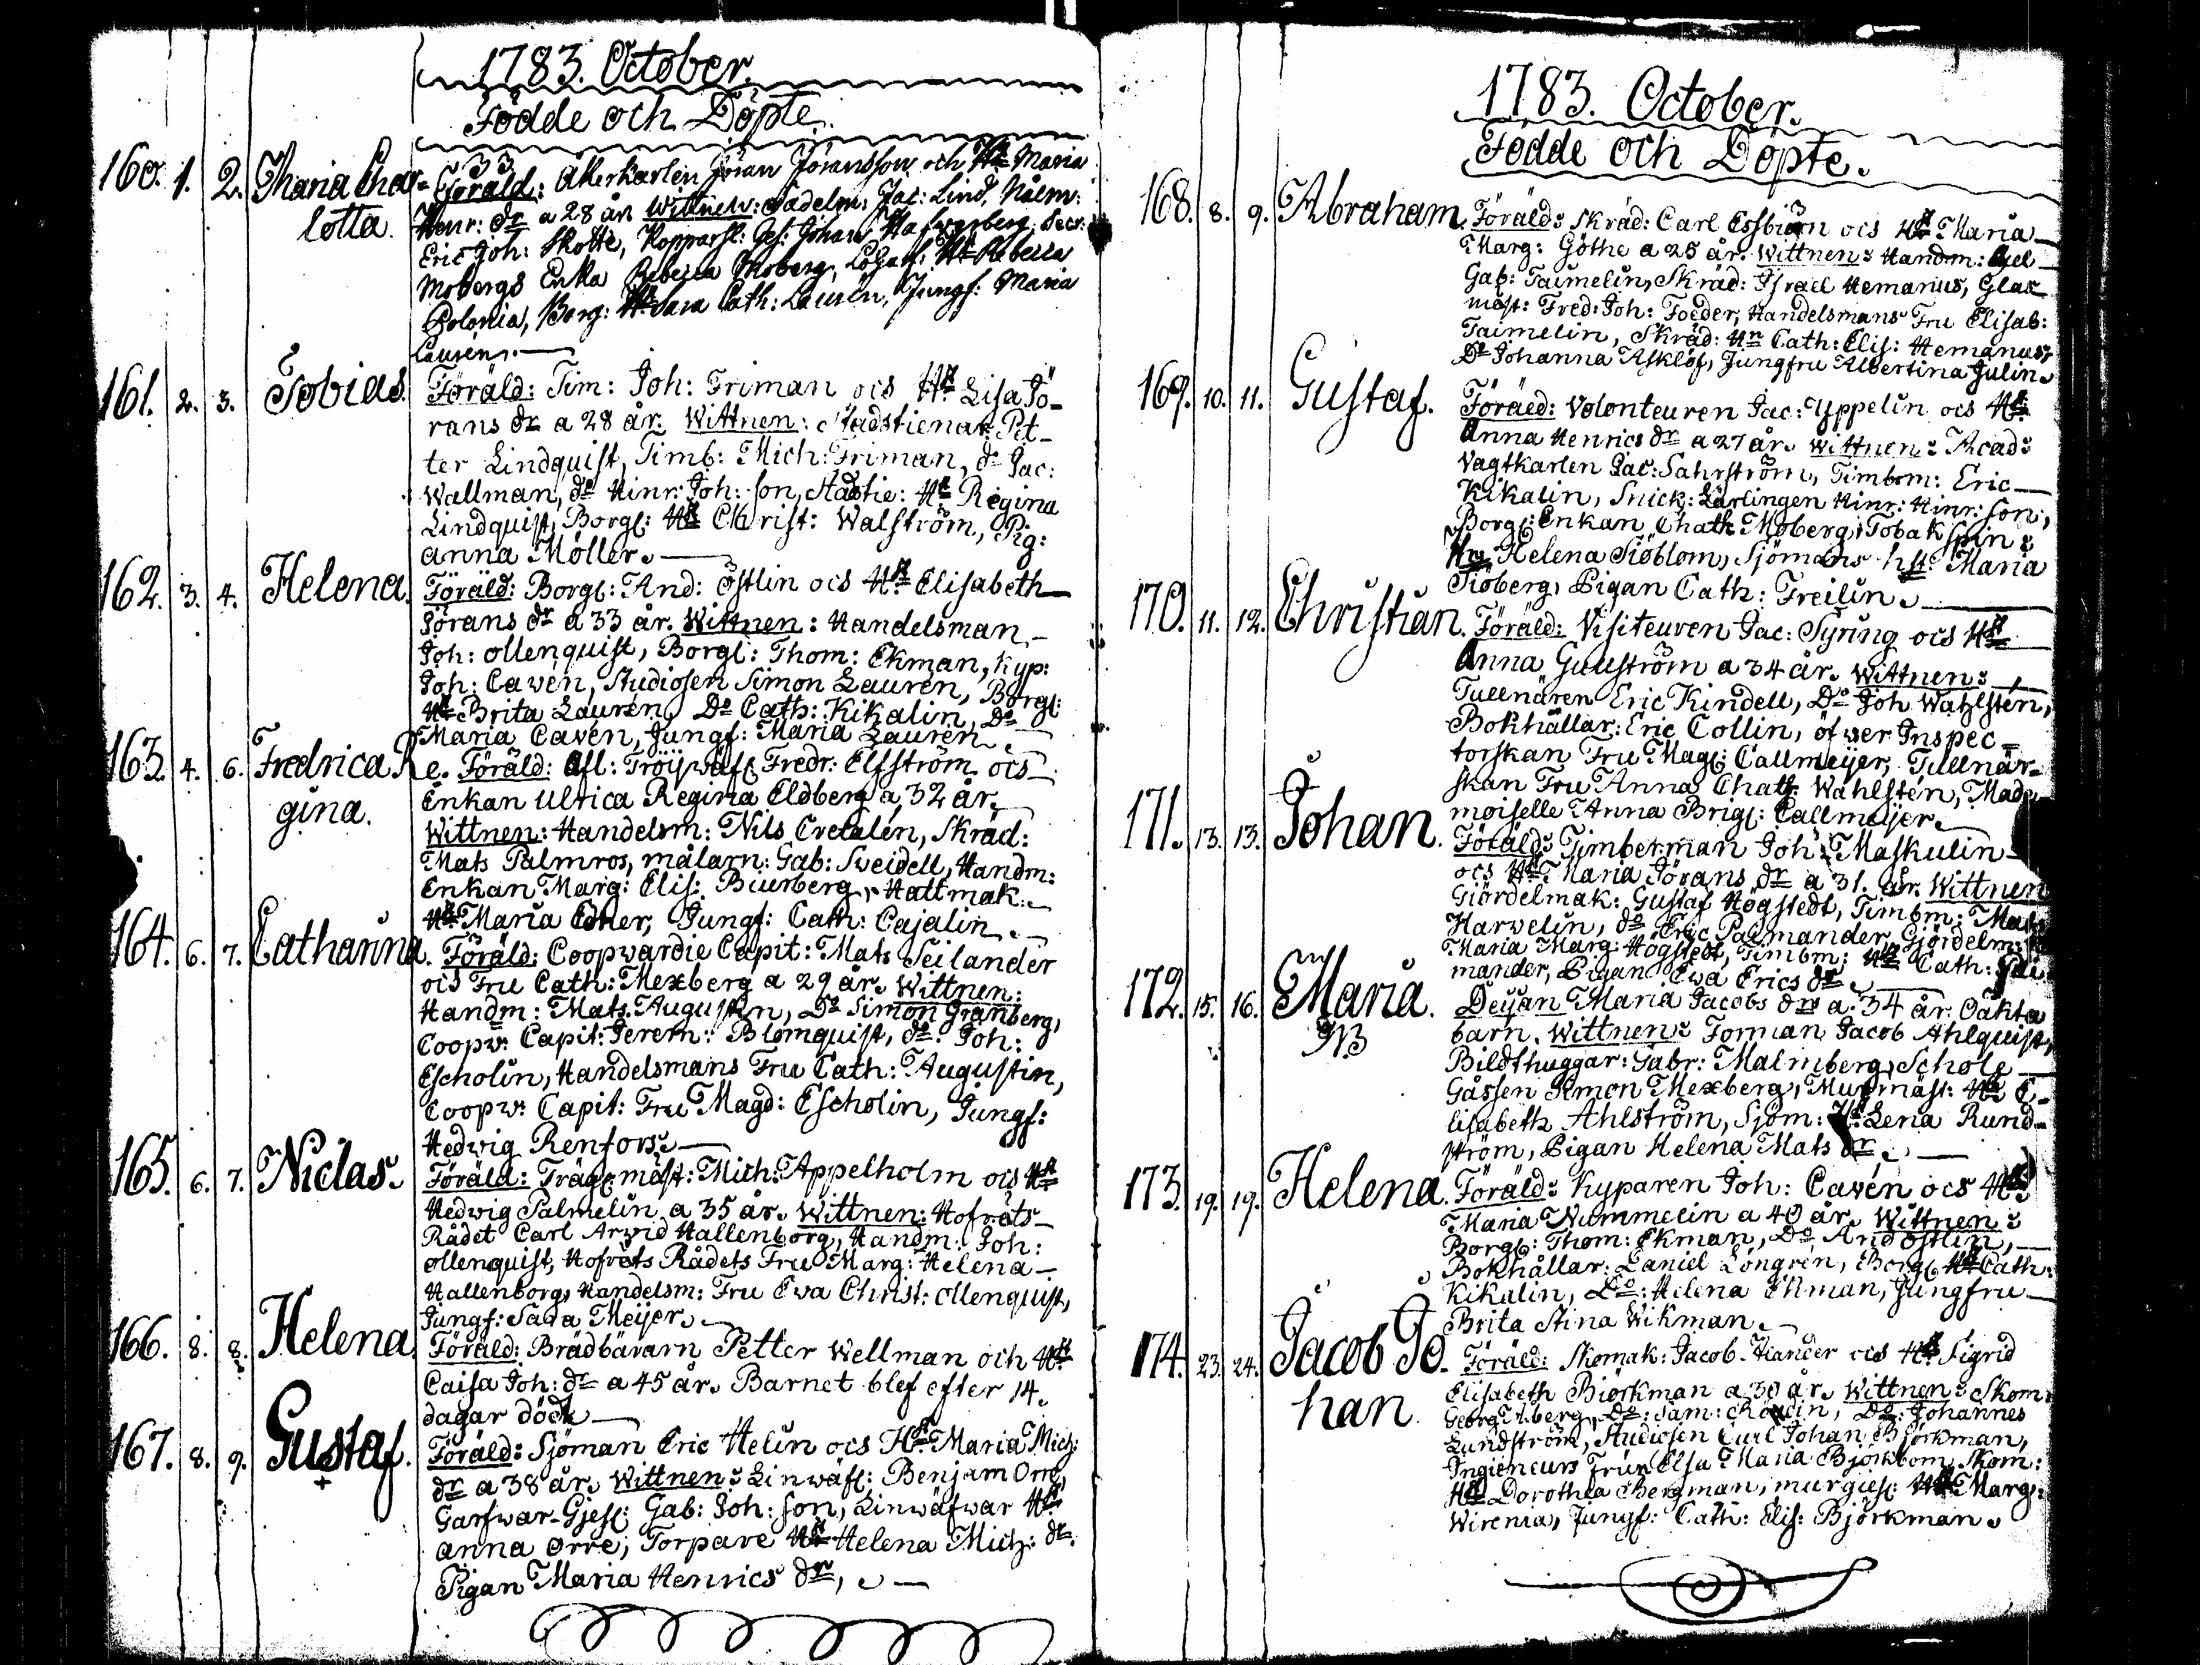 1783. October.
Födde och Döpte.
160. 1. 2. Maria Char-
lotta.
Föräld: Åkerkarlen Jöran Jöransson och H: Maria
Henr: dr a 28 år. Wittnen: Sadelm: Jac: Lind, Målm:
Eric Joh: Skotte, Kopparsl: Ges: Johan
Mobergs Enka Rebecca Moberg, H: Rebecca
Polonia, Borg: H: Sara Cath: Laurén, Jungf: Maria
Laurén.
161. 2. 3. Tobias.
Föräld: Tim: Joh: Friman ocs H: Lisa Jö-
rans dr a 28 år. Wittnen: Stadstienar: Pet-
ter Lindquist, Timb: Mich: Friman, do Jac:
Wallman, do Hinr: Joh: son, Stadtie: H: Regina
Lindquist, Borgl: H: Christ: Walström, Pig:
anna Möller.
162. 3. 4. Helena.
Föräld: Borgl: And: Östlin ocs H: Elisabeth
Jörans dr a 33 år. Wittnen: Handelsman
Joh: ollenquist, Borgl: Thom: Ekman, Kyp:
Joh: Cavén, Studiosen Simon Laurén, Borgl:
H: Brita Laurén, Do Cath: Kikalin, Do
Maria Cavén, Jungf: Maria Laurén.
163. 4. 6. Fredrica Re-
gina.
Föräld: Afl: Tröijwäfv: Fredr: Elfström ocs
Enkan Ulrica Regina Eldberg a 32 år.
Wittnen: Handelsm: Nils Cretalén, Skräd:
Mats Palmros, målarn: Gab: Sveidell, Handm:
Enkan Marg: Elis: Biurberg, Hattmak:
H: Maria Ester, Jungf: Cath: Cajalin.
164. 6. 7. Catharina.
Föräld: Coopwardie Capit: Mats Seilander
ocs Fru Cath: Mexberg a 29 år. Wittnen:
Handm: Mats Augustin, Do Simon Granberg,
Coopw: Capit: Jerem: Blomquist, do: Joh:
Escholin, Handelsmans Fru Cath: Augustin,
Coopw: Capit: Fru Magd: Escholin, Jungf:
Hedvig Renfors.
165. 6. 7. Niclas.
Föräld: Trägg: mäst: Mich: Appelholm ocs H:
Hedvig Palmelin a 35 år. Wittnen: Hofräts
Rådet Carl Arvid Hallenborg, Handm: Joh:
ollenquist, Hofräts Rådets Fru Marg: Helena
Hallenborg, Handelsm: Fru Ewa Christ: ollenquist,
Jungf: Sara Meijer.
166. 8. 8. Helena.
Föräld: Brädbärarn Petter Wellman och H:
Caisa Joh: dr a 45 år. Barnet blef efter 14.
dagar dödt
167. 8. 9. Gustaf.
+
Föräld: Sjöman Eric Helin ocs H: Maria Mich:
dr a 38 år. Wittnen: Linwäfv: Benjam Orre,
Garfwar-Gjesl: Gab: Joh: son, Linwäfwar H:
anna orre, Torpare H: Helena Mich: dr.
Pigan Maria Henrics dr,
1783. October.
Födde och Döpte.
168. 8. 9. Abraham.
Föräld: Skräd: Carl Essbiörn ocs H: Maria
Marg: Göthe a 25 år. Wittnen: Handm:
Gab: Taimelin, Skräd: Israel Hemanus, Glas
mäst: Fred: Joh: Foeder, Handelsmans Fru Elisab:
Taimelin, Skräd: H: Cath: Elis: Hemanus,
Do Johanna Asklöf, Jungfru Albertina Julin.
169. 10. 11. Gustaf.
Föräld: Volonteuren Jac: Uppelin ocs H:
Anna Henrics dr a 27 år. Wittnen: Acad:
Vagtkarlen Jac: Sahrström, Timberm: Eric
Kikalin, Snick: Lärlingen Hinr: Hinr: son,
Borgl: Enkan Chath: Moberg, Tobak spin:
H: Helena Siöblom, Sjömans h: Maria
Siöberg, Pigan Cath: Freilin.
170. 11. 12. Christian.
Föräld: Visiteuren Jac: Syring ocs H:
Anna Guuström a 34 år. Wittnen:
Tullnären Eric Kindell, Do Joh Wahlstén,
Bokhållar: Eric Collin, öfwer Inspec-
torskan Fru Magl: Callmeijer, Tullnär-
skan Fru Anna Chath: Wahlstén, Made-
moiselle Anna Brigl: Callmeijer.
171. 13. 13. Johan.
Föräld: Timberman Joh: Maskulin
ocs H: Maria Jörans dr a 31. år. Wittnen
Giördelmak: Gustaf Högstedt, Timbm: Mats
Harvelin, do Eric Palmander, Gjördelm:
Maria Marg: Högstedt, Timbm: H: Cath: Pal
mander, Pigan Ewa Erics dr.
172. 15. 16. Maria.
NB
Deijan Maria Jacobs dr a 34 år. Oäkta
barn. Wittnen: Forman Jacob Ahlquist,
Bildthuggar: Gabr: Malmberg, Schole
Gåssen Simon Mexberg, Murmäst: H: E-
lisabeth Ahlström, Sjöm: H: Lena Rund-
ström, Pigan Helena Mats dr.
173. 19. 19. Helena.
Föräld: Kyparen Joh: Cavén ocs H:
Maria Nummelin a 40 år. Wittnen:
Borgl: Thom: Ekman, Do And Östlin,
Bokhållar: Daniel Löngrén, Borgl: H: Cath:
Kikalin, Do: Helena Ekman, Jungfru
Brita Stina Wikman.
174. 23. 24. Jacob Jo-
han
Föräld: Skomak: Jacob Ilander ocs H: Sigrid
Elisabeth Biörkman a 30 år. Wittnen: Skom:
Georg Åberg, Do: Sam: Do: Johannes
Lundström, Studiosen Carl Johan Björkman,
Ingieneurs Frun Elsa Maria Björkbom, Skom:
H: Dorothea Bergman, murgies: H: Marg:
Wirenia, Jungf: Cath: Elis: Björkman.